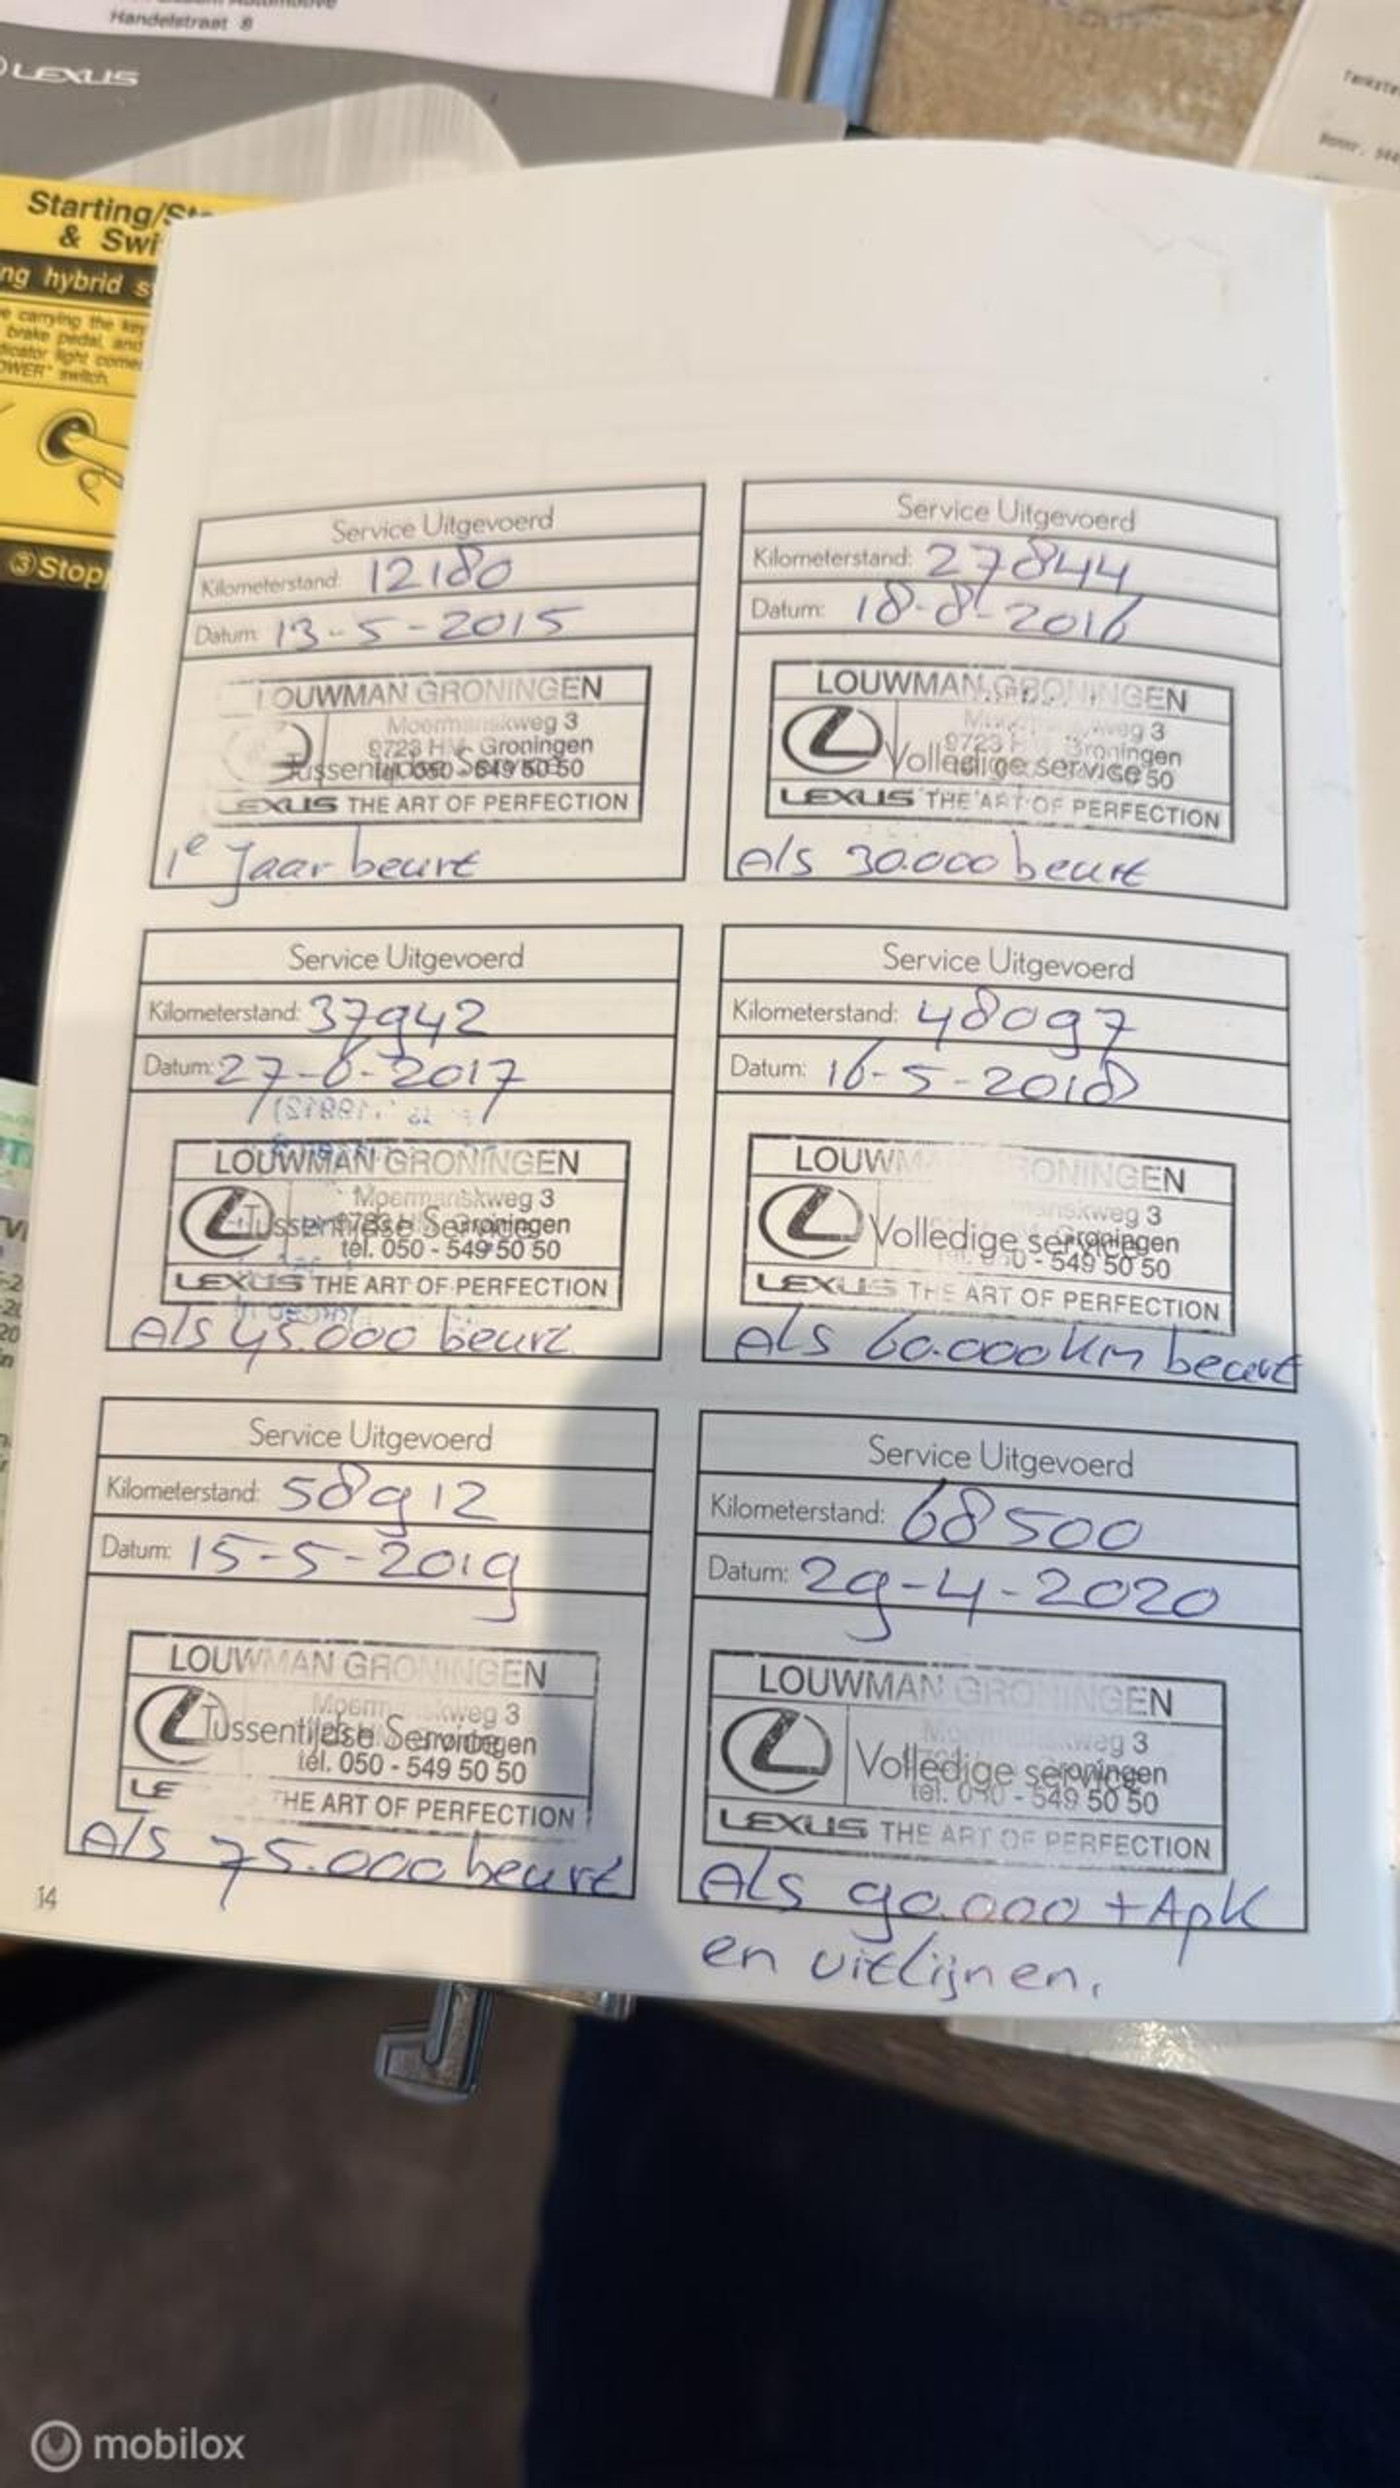 Handelstraat 8
LEXUS
Starting/
& Swi
ng hybrid s
e carrying the key
brake pedal, and
dicator light comes
OWER" switch.
③Stop
Service Uitgevoerd
Kilometerstand: 12180
Datum: 13-5-2015
LOUWMAN GRONINGEN
Moermanskweg 3
9723 HM Groningen
Tussentijdse Service
tel. 050 - 549 50 50
LEXUS THE ART OF PERFECTION
1e Jaar beurt
Service Uitgevoerd
Kilometerstand: 27844
Datum: 18-8-2016
LOUWMAN GRONINGEN
weg 3
9723 Groningen
Volledige service
50
LEXUS THE ART OF PERFECTION
Als 30.000 beurt
Service Uitgevoerd
Kilometerstand: 37942
Datum: 27-6-2017
LOUWMAN GRONINGEN
Moermanskweg 3
Tussentijdse Service
Groningen
tel. 050 - 549 50 50
LEXUS THE ART OF PERFECTION
Als 45.000 beurt
Service Uitgevoerd
Kilometerstand: 48097
Datum: 16-5-2018
LOUWMAN GRONINGEN
manskweg 3
Volledige service
Groningen
050 - 549 50 50
LEXUS THE ART OF PERFECTION
Als 60.000 km beurt
Service Uitgevoerd
Kilometerstand: 58912
Datum: 15-5-2019
LOUWMAN GRONINGEN
Moermanskweg 3
Tussentijdse Service
Groningen
tel. 050 - 549 50 50
LE THE ART OF PERFECTION
Als 75.000 beurt
Service Uitgevoerd
Kilometerstand: 68500
Datum: 29-4-2020
LOUWMAN GRONINGEN
Moermanskweg 3
Volledige service
Groningen
tel. 050 - 549 50 50
LEXUS THE ART OF PERFECTION
Als 90.000 + Apk
en uitlijnen.
14
mobilox